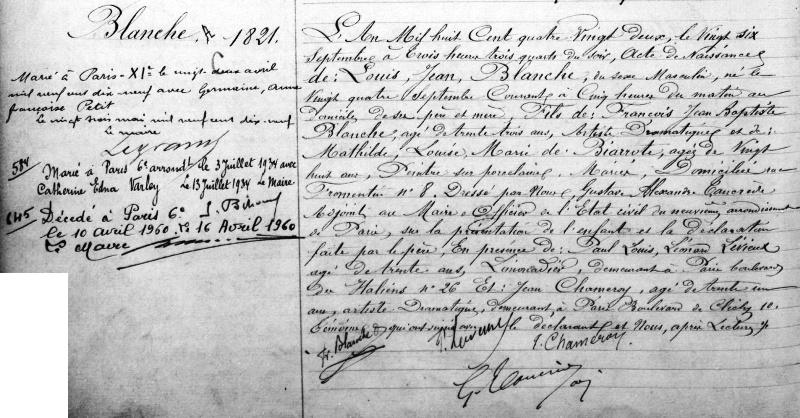 Blanche. 1821.
Marié à Paris-XIe le vingt deux avril
mil neuf cent dix neuf avec Germaine, Anne
Françoise Petit
Le vingt trois mai mil neuf cent dix neuf
le maire
584
Marié à Paris 6e arrondt le 3 Juillet 1934 avec
Catherine Edna Varley Le 13 Juillet 1934 Le Maire
Décédé à Paris 6e
le 10 avril 1960. Le 16 Avril 1960
Le Maire
L'An Mil huit Cent quatre Vingt deux, le Vingt six
Septembre à Trois heures trois quarts du soir, Acte de Naissance
de: Louis, Jean, Blanche, du sexe Masculin, né le
Vingt quatre Septembre Courant à Cinq heures du matin au
Domicile de ses père et mère. Fils de: François Jean Baptiste
Blanche, agé de trente trois ans, Artiste Dramatique et de:
Mathilde, Louise, Marie de Biarrote, agée de Vingt
huit ans, Peintre sur porcelaine, Mariés, Domiciliés rue
Fromentin no 8. Dressé par Nous, Gustave Alexandre
Adjoint au Maire Officier de l'Etat civil du neuvième arrondissement
de Paris, sur la présentation de l'enfant et la déclaration
faite par le père, En présence de: Paul Louis, Léonard
agé de trente ans, Limonadier, demeurant à Paris boulevard
des Italiens No 26 Et: Jean Chameroy, agé de trente un
ans, artiste Dramatique, demeurant à Paris Boulevard de Clichy 10.
Témoins qui ont signé avec le déclarant et Nous, après Lecture
Fr. Blanche J. Chameroy